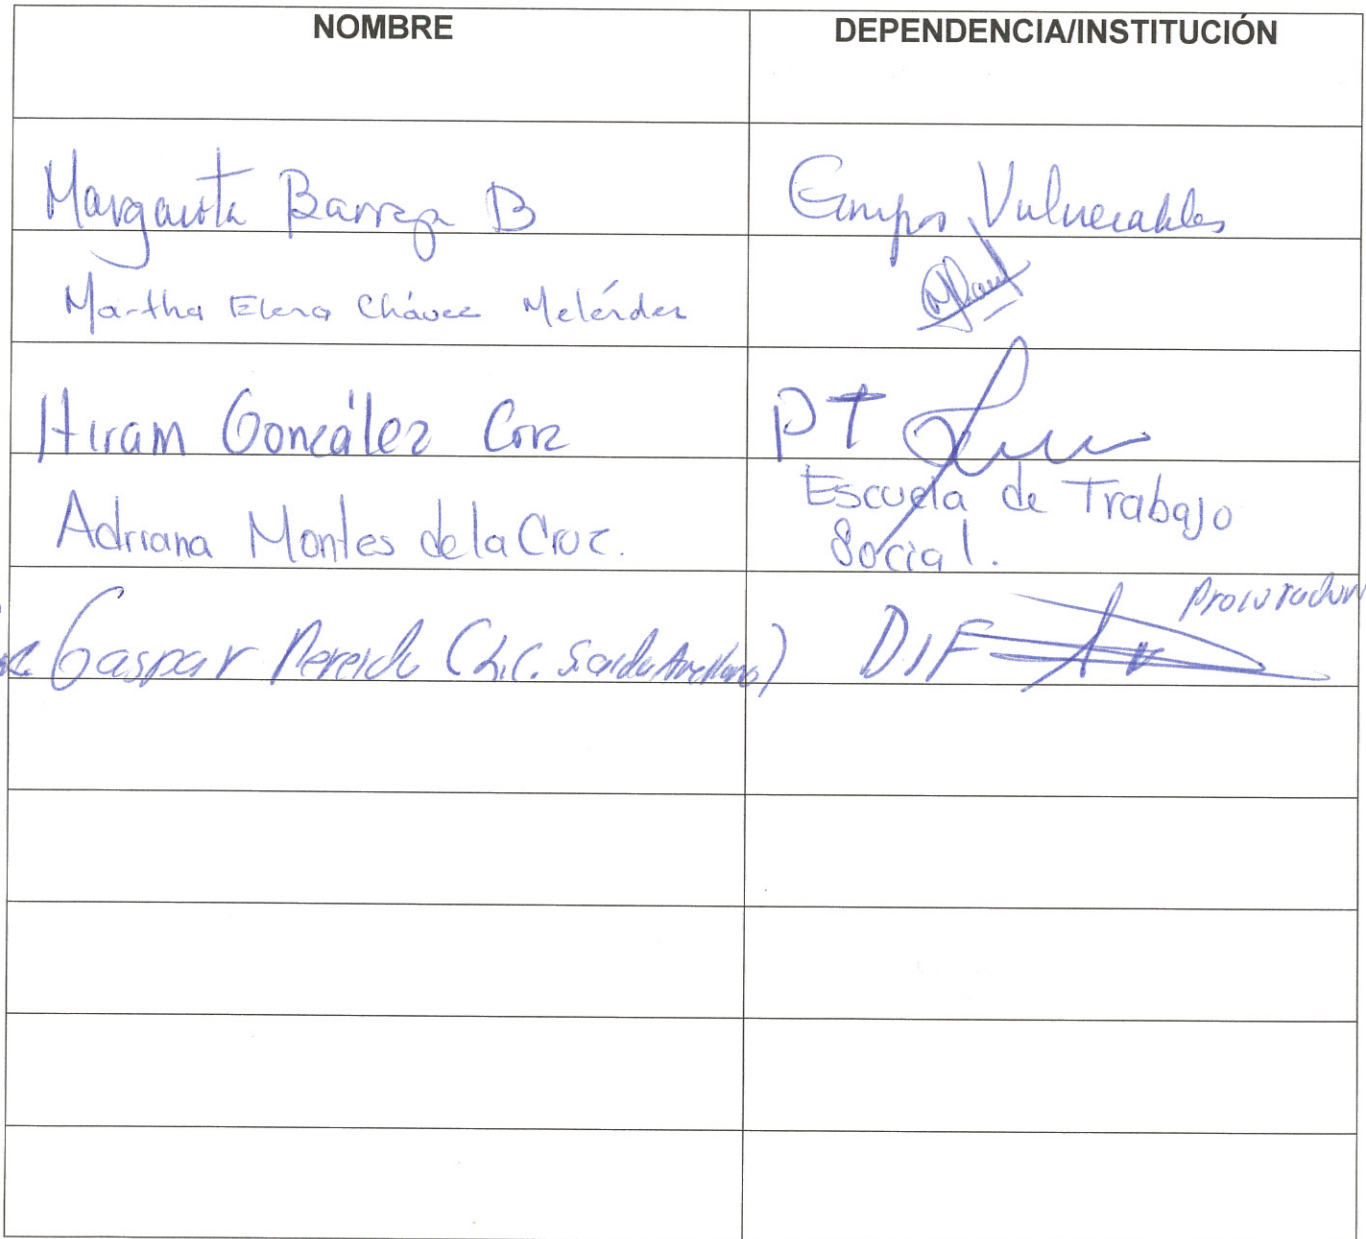 NOMBRE DEPENDENCIA/INSTITUCIÓN
Margarita Barrera B Grupos Vulnerables
Martha Elena Chávez Meléndez
Hiram González Coz PT
Adriana Montes de la Cruz. Escuela de Trabajo
Social.
Gaspar (Lic. DIF